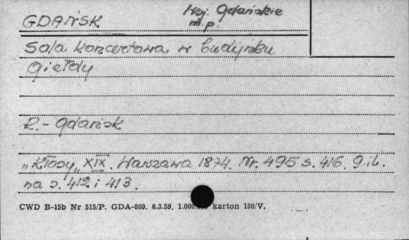 GDAŃSK
Woj. Gdańskie
m.p.
Sala koncertowa w budynku
Giełdy
R. - Gdańsk
„Kłosy„ XIX. Warszawa 1874. Nr. 495 s. 416. G.il.
na s. 412 i 413.
CWD B-15b Nr 515/P. GDA-809. 6.3.59. karton 180/V.